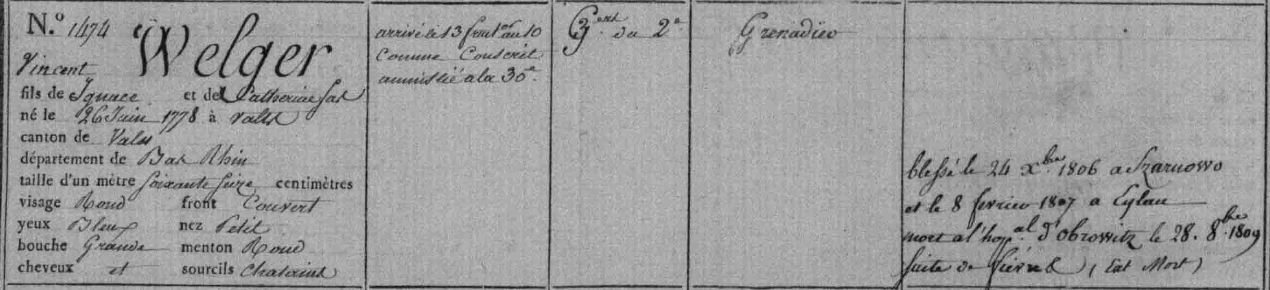 N.º 1474 Welger
Vincent
fils de Ignace et de Catherine
né le 26 Juin 1778 à
canton de
département de Bas Rhin
taille d'un mètre soixante seize centimètres
visage Rond front Couvert
yeux Bleux nez Petit
bouche Grande menton Rond
cheveux et sourcils Chatains
arrivé le 13 fruct.or an 10
comme Conscrit
amnistié a la 30e.
G.ers du 2e
Grenadier
blessé le 24 Xbre 1806 a Kzarnowo
et le 8 fevrier 1807 a Eylau
mort a l'hop.al d'Obrowitz le 28. 8bre 1809
suite de fievre (Ext Mort)